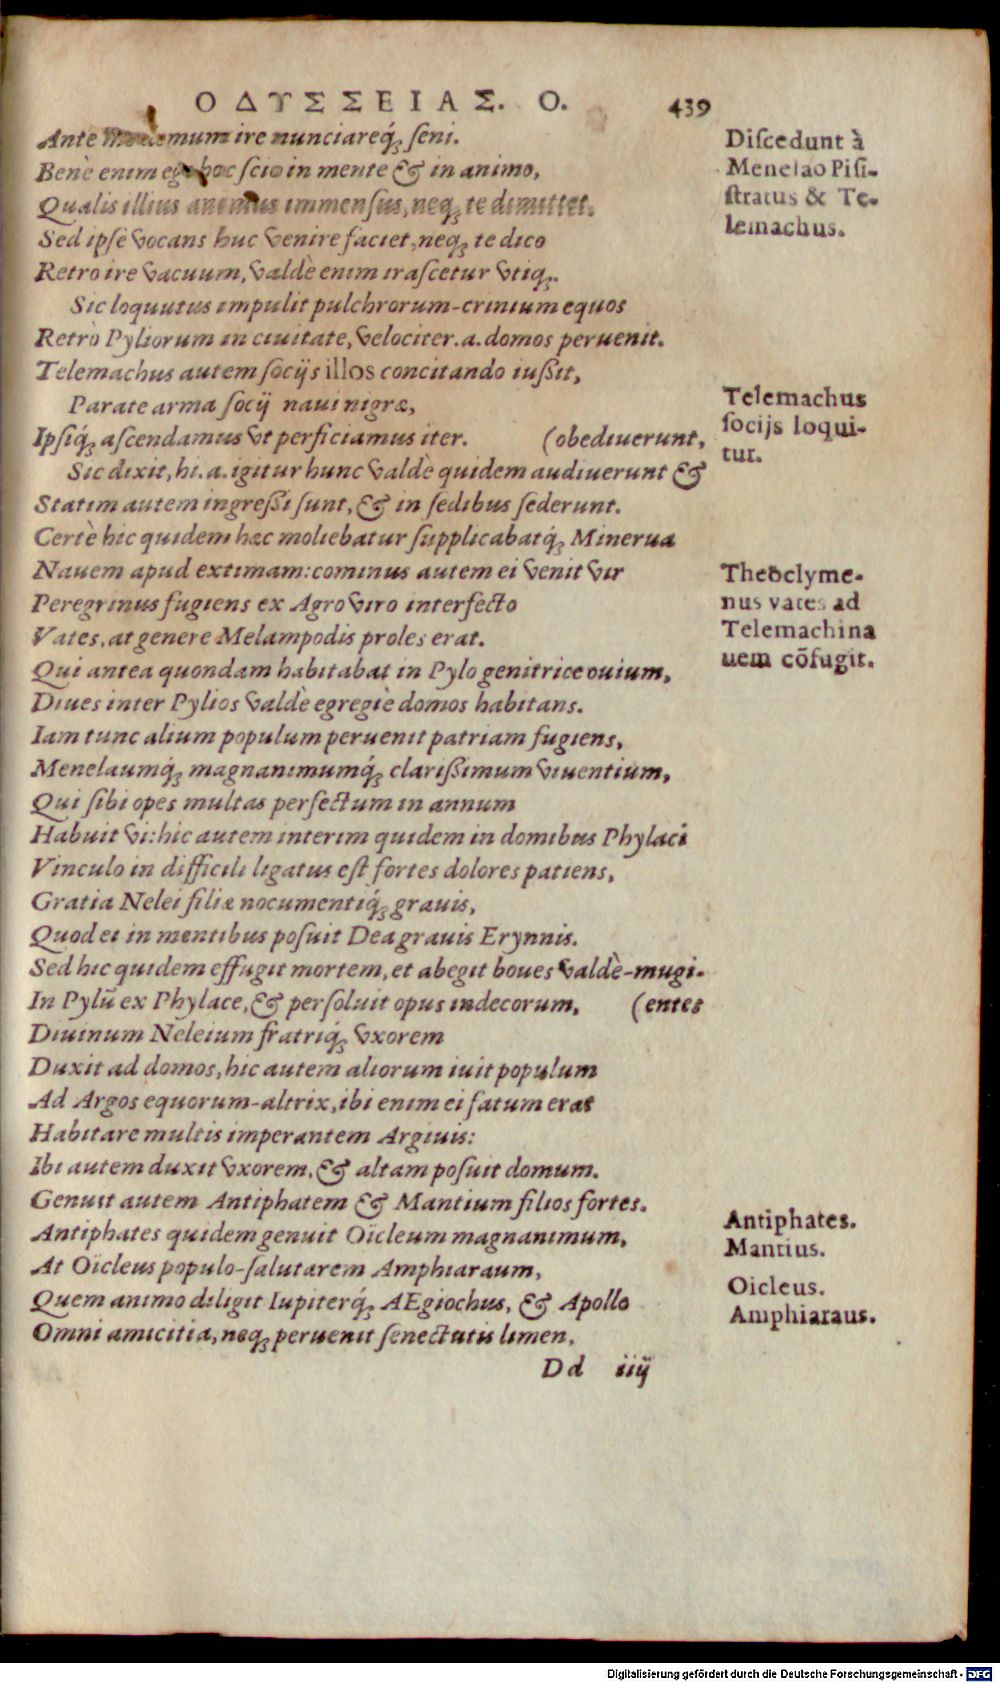 ΟΔΥΣΣΕΙΑΣ. Ο. 439
Ante me domum ire nunciareq́; seni.
Benè enim ego hoc scio in mente & in animo,
Qualis illius animus immensus, neq; te dimittet.
Sed ipse vocans huc venire faciet, neq; te dico
Retro ire vacuum, valdè enim irascetur vtiq;.
Sic loquutus impulit pulchrorum-crinium equos
Retrò Pyliorum in ciuitate, velociter .a. domos peruenit.
Telemachus autem socijs illos concitando iussit,
Parate arma socij naui nigræ,
Ipsiq́; ascendamus vt perficiamus iter. (obediuerunt,
Sic dixit, hi .a. igitur hunc valdè quidem audiuerunt &
Statim autem ingressi sunt, & in sedibus sederunt.
Certè hic quidem hæc moliebatur supplicabatq́; Minerua
Nauem apud extimam: cominus autem ei venit vir
Peregrinus fugiens ex Agro viro interfecto
Vates, at genere Melampodis proles erat.
Qui antea quondam habitabat in Pylo genitrice ouium,
Diues inter Pylios valdè egregiè domos habitans.
Iam tunc alium populum peruenit patriam fugiens,
Menelaumq́; magnanimumq́; clarissimum viuentium,
Qui sibi opes multas perfectum in annum
Habuit vi: hic autem interim quidem in domibus Phylaci
Vinculo in difficili ligatus est fortes dolores patiens,
Gratia Nelei filiæ nocumentiq́; grauis,
Quod ei in mentibus posuit Dea grauis Erynnis.
Sed hic quidem effugit mortem, et abegit boues valdè-mugi-
In Pylũ ex Phylace, & persoluit opus indecorum, (entes
Diuinum Neleium fratriq́; vxorem
Duxit ad domos, hic autem aliorum iuit populum
Ad Argos equorum-altrix, ibi enim ei fatum erat
Habitare multis imperantem Argiuis:
Ibi autem duxit vxorem, & altam posuit domum.
Genuit autem Antiphatem & Mantium filios fortes.
Antiphates quidem genuit Oïcleum magnanimum,
At Oïcleus populo-salutarem Amphiaraum,
Quem animo diligit Iupiterq́; AEgiochus, & Apollo
Omni amicitia, neq; peruenit senectutis limen,
Dd iiij
Discedunt à
Menelao Pisi-
stratus & Te-
lemachus.
Telemachus
socijs loqui-
tur.
Theoclyme-
nus vates ad
Telemachi na
uem cõfugit.
Antiphates.
Mantius.
Oicleus.
Amphiaraus.
Digitalisierung gefördert durch die Deutsche Forschungsgemeinschaft - DFG